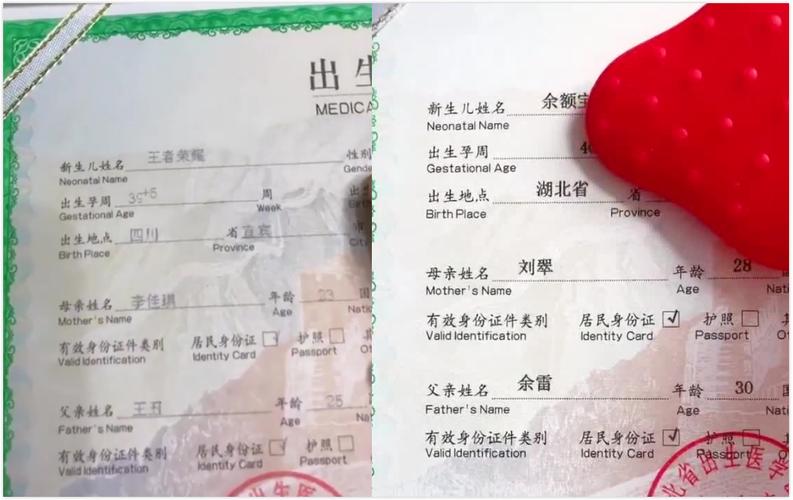 出生
MEDICA
新生儿姓名 王者荣耀 性别
Neonatal Name Gende
出生孕周 39+5 周
Gestational Age Week
出生地点 四川 省 宜宾
Birth Place Province
母亲姓名 李佳琪 年龄 23
Mother's Name Age Nati
有效身份证件类别 居民身份证 护照
Valid Identification Identity Card Passport
父亲姓名 年龄 25
Father's Name Age Natio
有效身份证件类别 居民身份证 护照
Valid Identification Identity Card Passport
出生医
新生儿姓名 余额宝
Neonatal Name
出生孕周 40
Gestational Age
出生地点 湖北省 省
Birth Place Province
母亲姓名 刘翠 年龄 28
Mother's Name Age Nati
有效身份证件类别 居民身份证 ✓ 护照
Valid Identification Identity Card Passport
父亲姓名 余雷 年龄 30
Father's Name Age Nati
有效身份证件类别 居民身份证 ✓ 护照
Valid Identification Identity Card Passport
北省出生医学